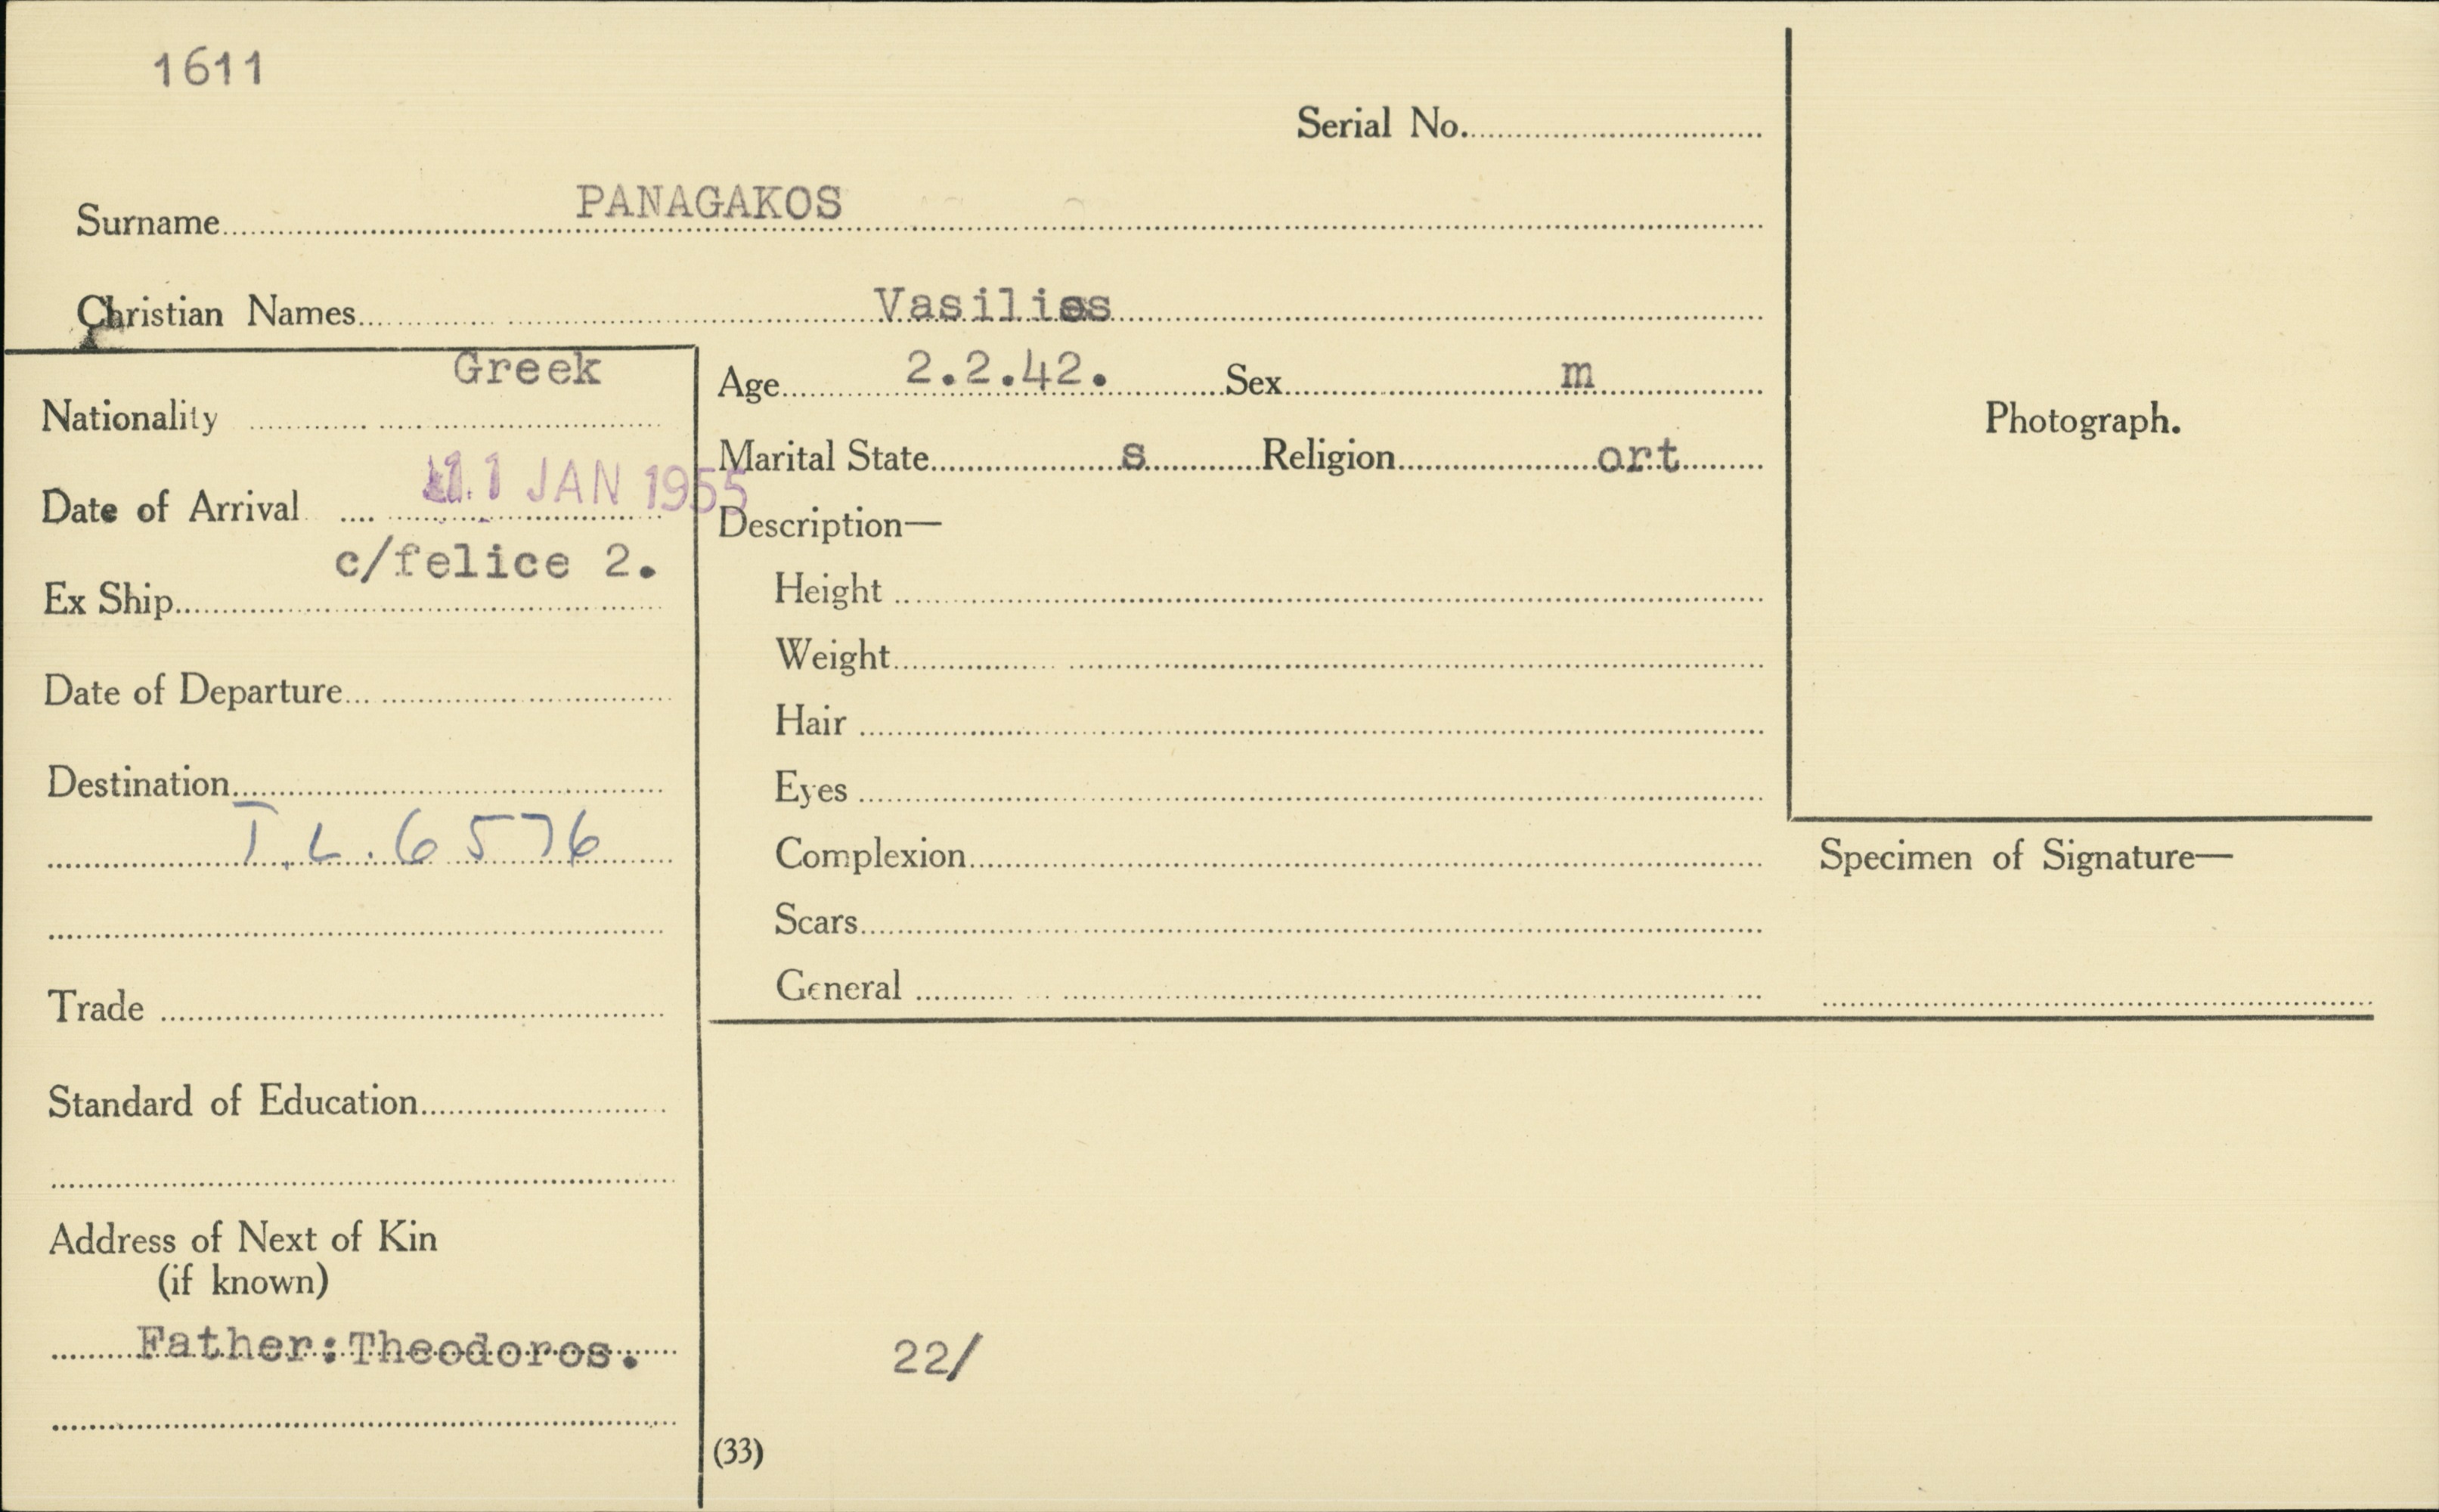 1611
Serial No.
Surname PANAGAKOS
Christian Names Vasilios
Nationality Greek
Date of Arrival 11 JAN 1955
Ex Ship c/felice 2.
Date of Departure
Destination
T.L. 6576
Trade
Standard of Education
Address of Next of Kin
(if known)
Father:Theodoros.
Age 2.2.42. Sex m
Marital State s Religion ort
Description—
Height
Weight
Hair
Eyes
Complexion
Scars
General
22/
(33)
Photograph.
Specimen of Signature—